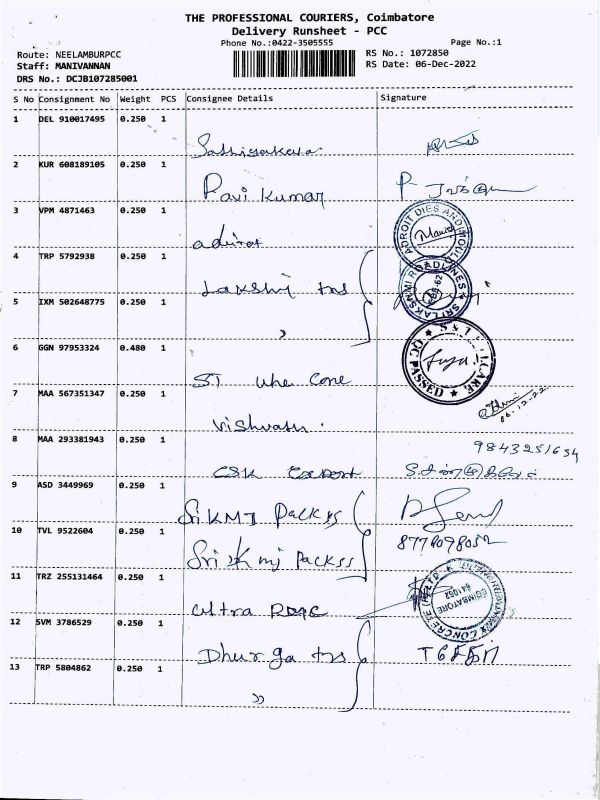 THE PROFESSIONAL COURIERS, Coimbatore
Delivery Runsheet - PCC
Phone No.:0422-3505555 Page No.:1
Route: NEELAMBURPCC RS No.: 1072850
Staff: MANIVANNAN RS Date: 06-Dec-2022
DRS No.: DCJB107285001
S No Consignment No Weight PCS Consignee Details Signature
1 DEL 910017495 0.250 1
2 KUR 608189105 0.250 1
Ravi Kumar P-
3 VPM 4871463 0.250 1
ADROIT DIES AND MOULD
4 TRP 5792938 0.250 1
Lakshmi tns
SRI LAKSHMI ROADLINES
5 IXM 502648775 0.250 1
"
6 GGN 97953324 0.480 1
QC PASSED
ST
7 MAA 567351347 0.250 1
06.12.22
8 MAA 293381943 0.250 1
9843251654
CSK
9 ASD 3449969 0.250 1
Sri KMJ Packss
10 TVL 9522604 0.250 1
Packss
11 TRZ 255131464 0.250 1
Ultra
COIMBATORE
641062
12 SVM 3786529 0.250 1
Dhurga tns
13 TRP 5804862 0.250 1
"